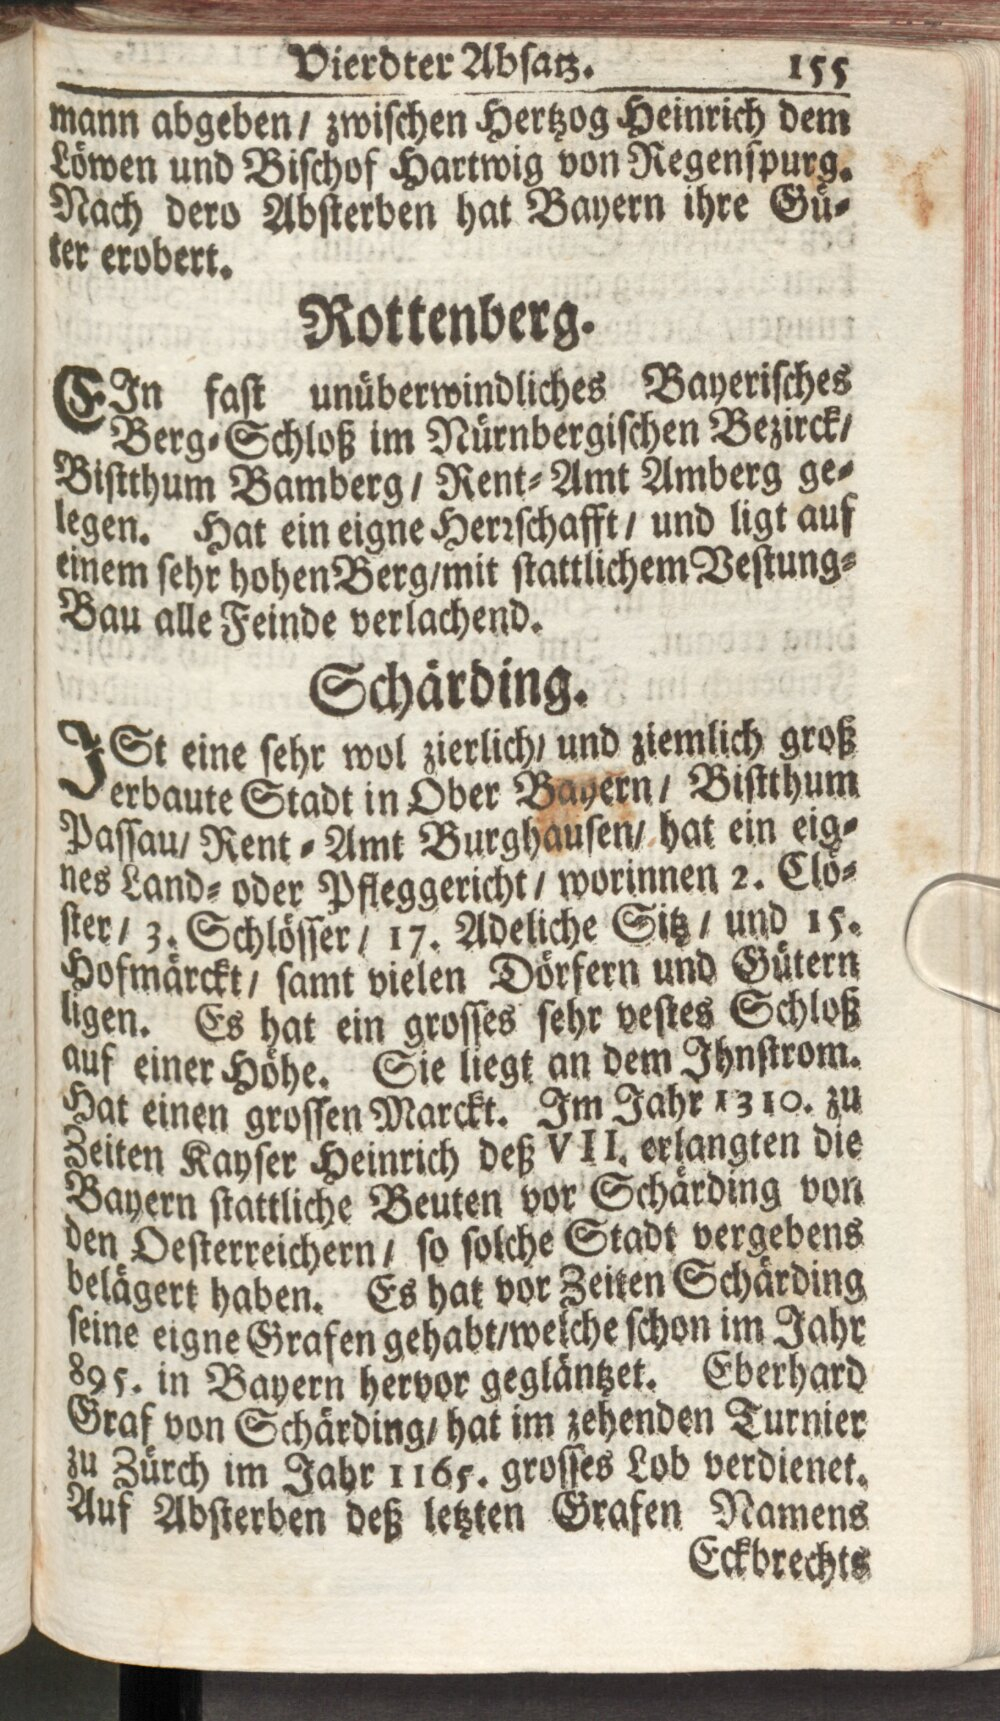 Vierdter Absatz. 155
mann abgeben / zwischen Hertzog Heinrich dem
Löwen und Bischof Hartwig von Regenspurg.
Nach dero Absterben hat Bayern ihre Gü-
ter erobert.
Rottenberg.
EIn fast unüberwindliches Bayerisches
Berg-Schloß im Nürnbergischen Bezirck /
Bistthum Bamberg / Rent-Amt Amberg ge-
legen. Hat ein eigne Herrschafft / und ligt auf
einem sehr hohen Berg / mit stattlichem Vestung-
Bau alle Feinde verlachend.
Schärding.
JSt eine sehr wol zierlich / und ziemlich groß
erbaute Stadt in Ober Bayern / Bistthum
Passau / Rent-Amt Burghausen / hat ein eig-
nes Land- oder Pfleggericht / worinnen 2. Clö-
ster / 3. Schlösser / 17. Adeliche Sitz / und 15.
Hofmärckt / samt vielen Dörfern und Gütern
ligen. Es hat ein grosses sehr vestes Schloß
auf einer Höhe. Sie liegt an dem Jhnstrom.
Hat einen grossen Marckt. Jm Jahr 1310. zu
Zeiten Kayser Heinrich deß VII. erlangten die
Bayern stattliche Beuten vor Schärding von
den Oesterreichern / so solche Stadt vergebens
belägert haben. Es hat vor Zeiten Schärding
seine eigne Grafen gehabt / welche schon im Jahr
895. in Bayern hervor gegläntzet. Eberhard
Graf von Schärding / hat im zehenden Turnier
zu Zürch im Jahr 1165. grosses Lob verdienet.
Auf Absterben deß letzten Grafen Namens
Eckbrechts